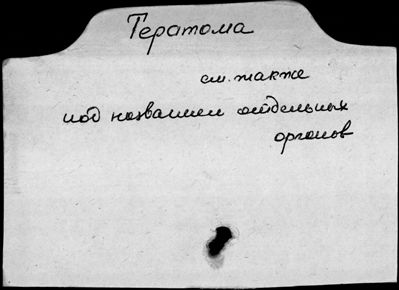 Тератома
см. также
под названием отдельных
органов